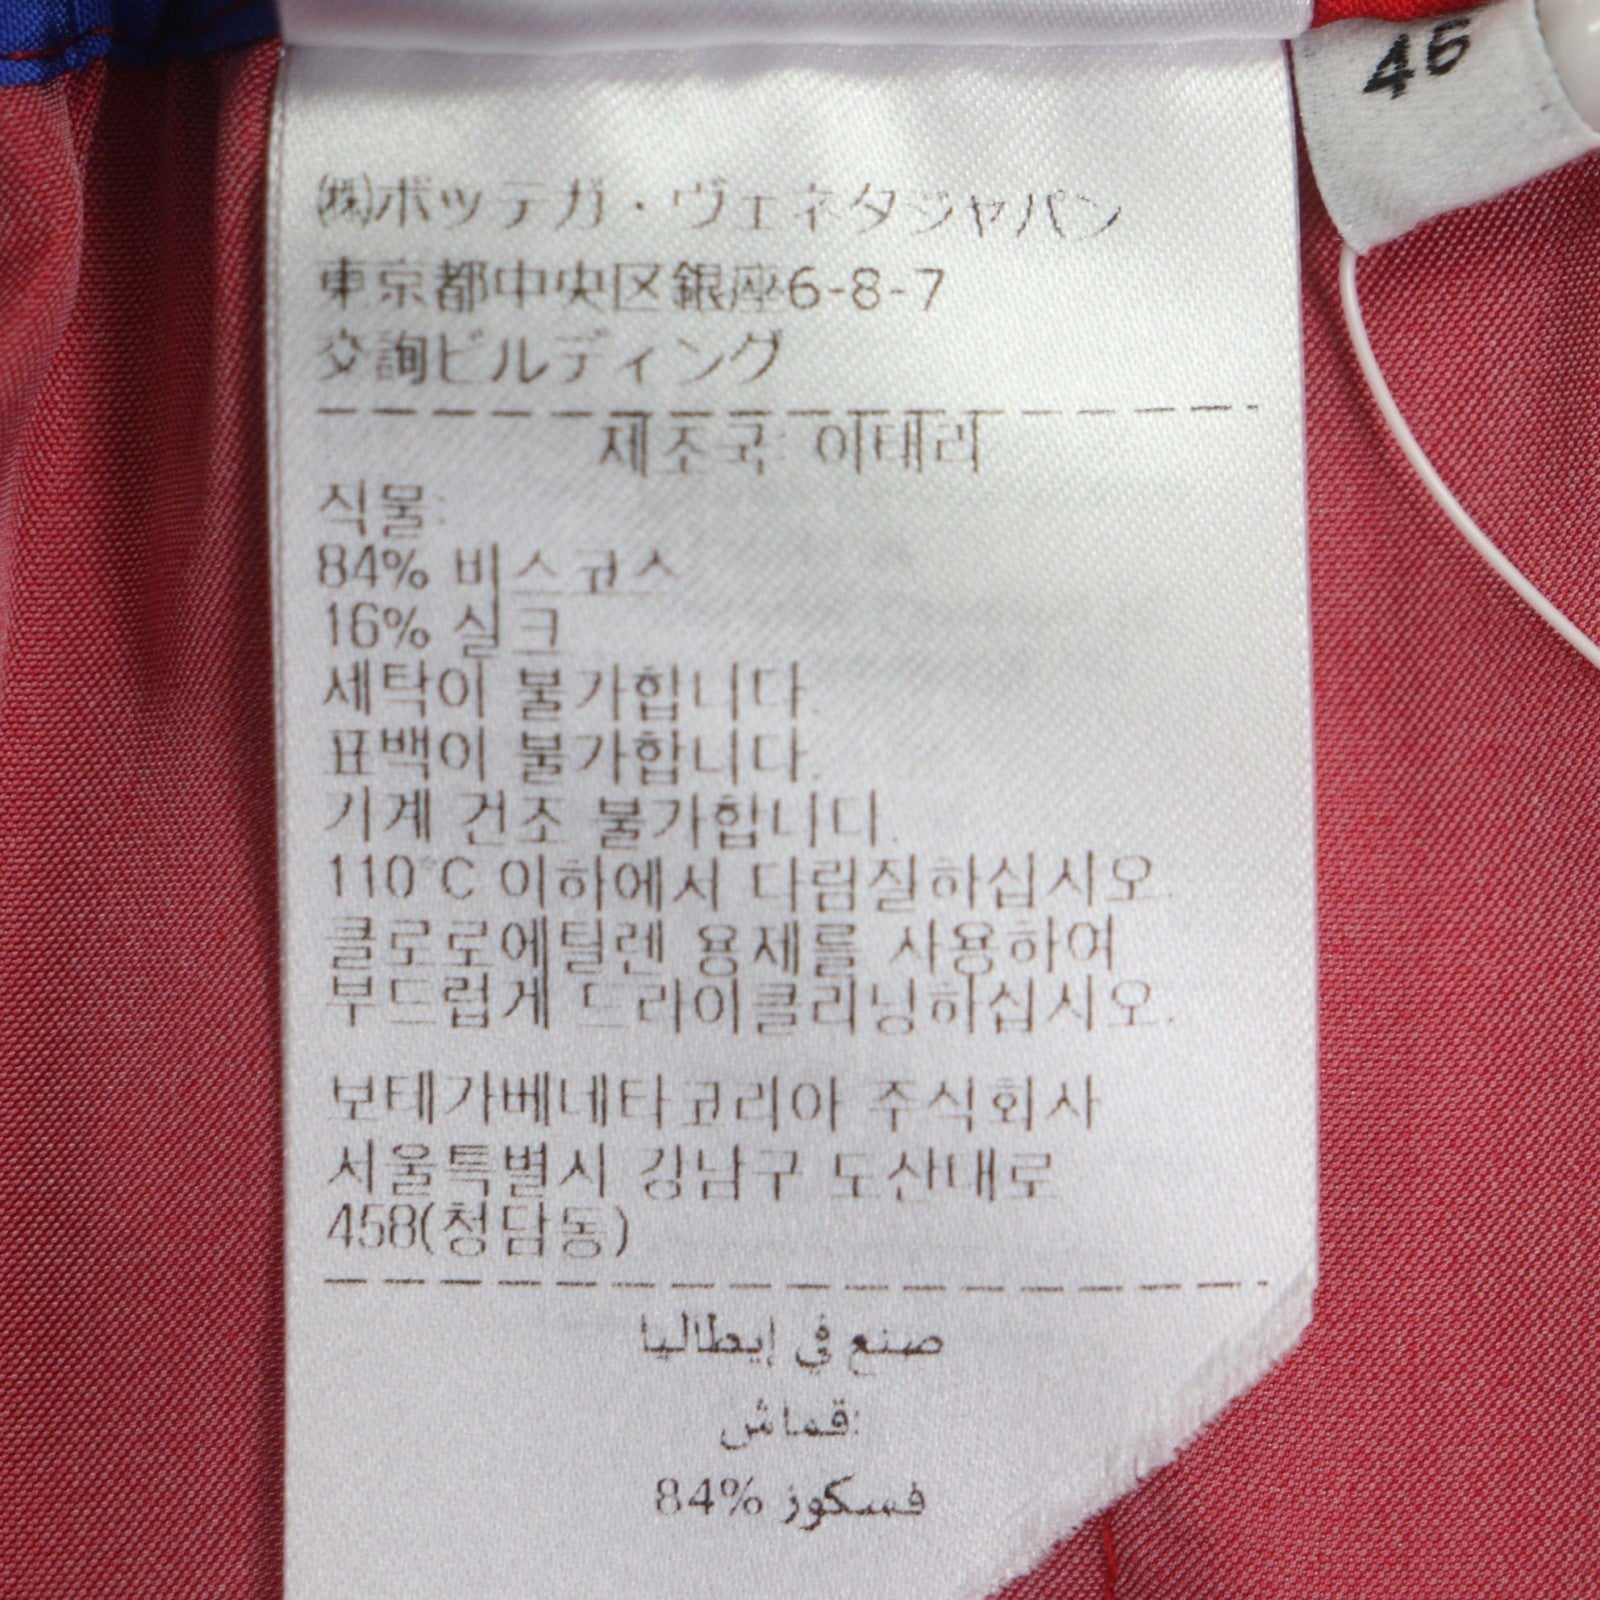 46
㈱ボッテガ・ヴェネタジャパン
東京都中央区銀座6-8-7
交詢ビルディング
제조국: 이태리
식물:
84% 비스코스
16% 실크
세탁이 불가합니다.
표백이 불가합니다.
기계 건조 불가합니다.
110°C 이하에서 다림질하십시오.
클로로에틸렌 용제를 사용하여
부드럽게 드라이클리닝하십시오.
보테가베네타코리아 주식회사
서울특별시 강남구 도산대로
458(청담동)
صنع في إيطاليا
قماش:
84% فسكوز